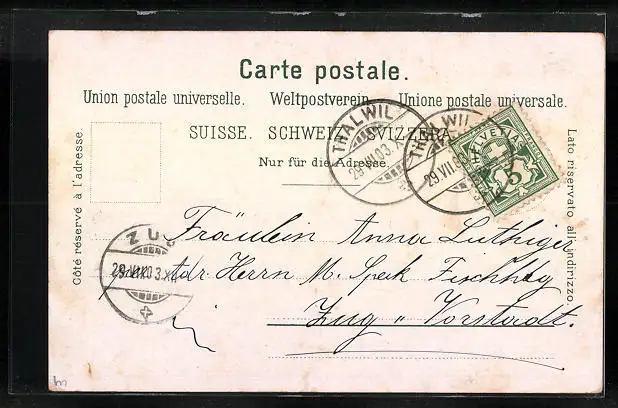 Carte postale.
Union postale universelle. Weltpostverein. Unione postale universale.
SUISSE. SCHWEIZ. SVIZZERA.
Nur für die Adresse.
Côté réservé à l'adresse.
Lato riservato all'indirizzo.
THALWIL
29.VII.03.X
THALWIL
29.VII.03
HELVETIA
5
ZUG
29.VII.03.X
Fräulein Anna Luthiger
Adr. Herrn M. Speck Fischhdg
Zug " Vorstadt.